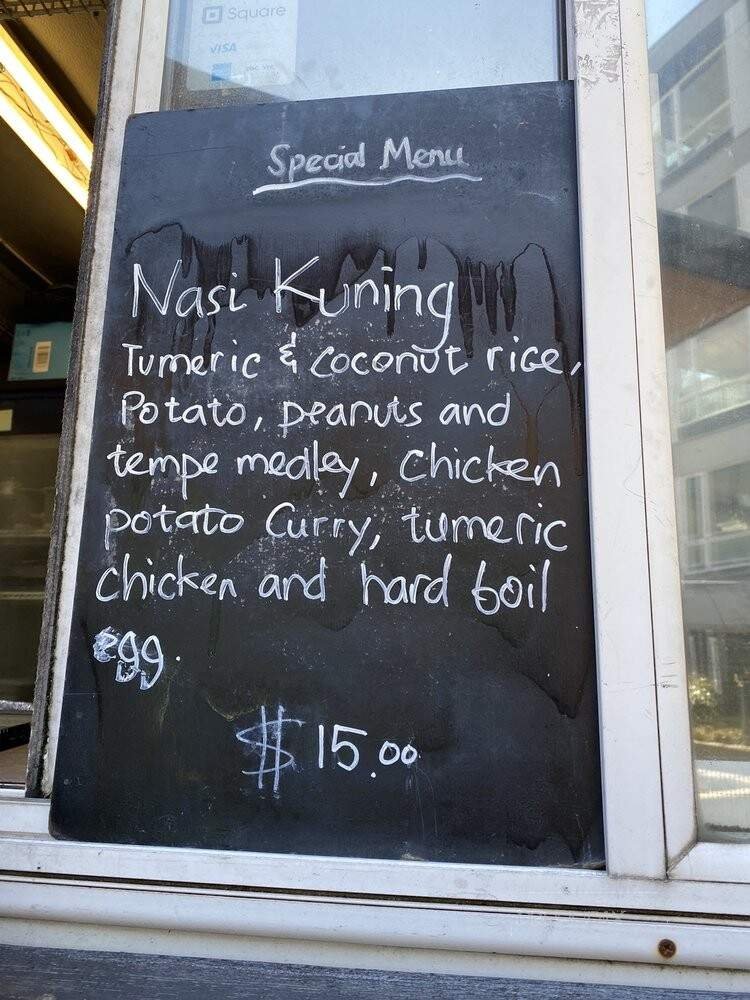 Square
VISA
Special Menu
Nasi Kuning
Tumeric & coconut rice,
Potato, peanuts and
tempe medley, Chicken
potato Curry, tumeric
Chicken and hard boil
egg.
$ 15.00